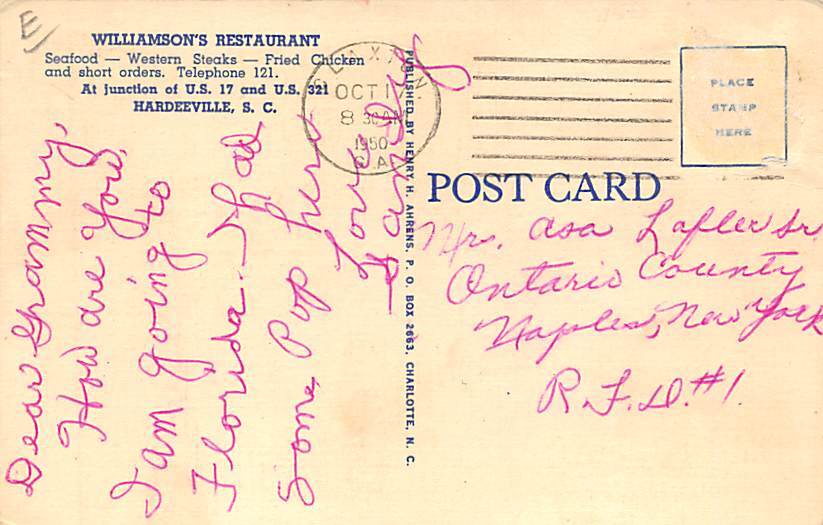 E
WILLIAMSON'S RESTAURANT
Seafood — Western Steaks — Fried Chicken
and short orders. Telephone 121.
At junction of U.S. 17 and U.S. 321
HARDEEVILLE, S. C.
Dear Grammy,
How are You,
I am going to
Florida. I had
Some Pop here
Love
PUBLISHED BY HENRY H. AHRENS, P. O. BOX 2663, CHARLOTTE, N. C.
CLAXTON
OCT
8 30 AM
1950
GA.
PLACE
STAMP
HERE
POST CARD
Mr. Asa Lafler Sr.
Ontario County
Naples, New York
R.F.D. #1.